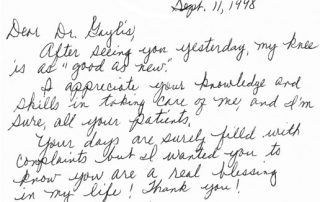 Sept. 11, 1998
Dear Dr. Gaylis,
After seeing you yesterday, my knee
is as "good as new."
I appreciate your knowledge and
skills in taking care of me, and I'm
sure, all your patients.
Your days are surely filled with
complaints but I wanted you to
know you are a real blessing
in my life! Thank you!